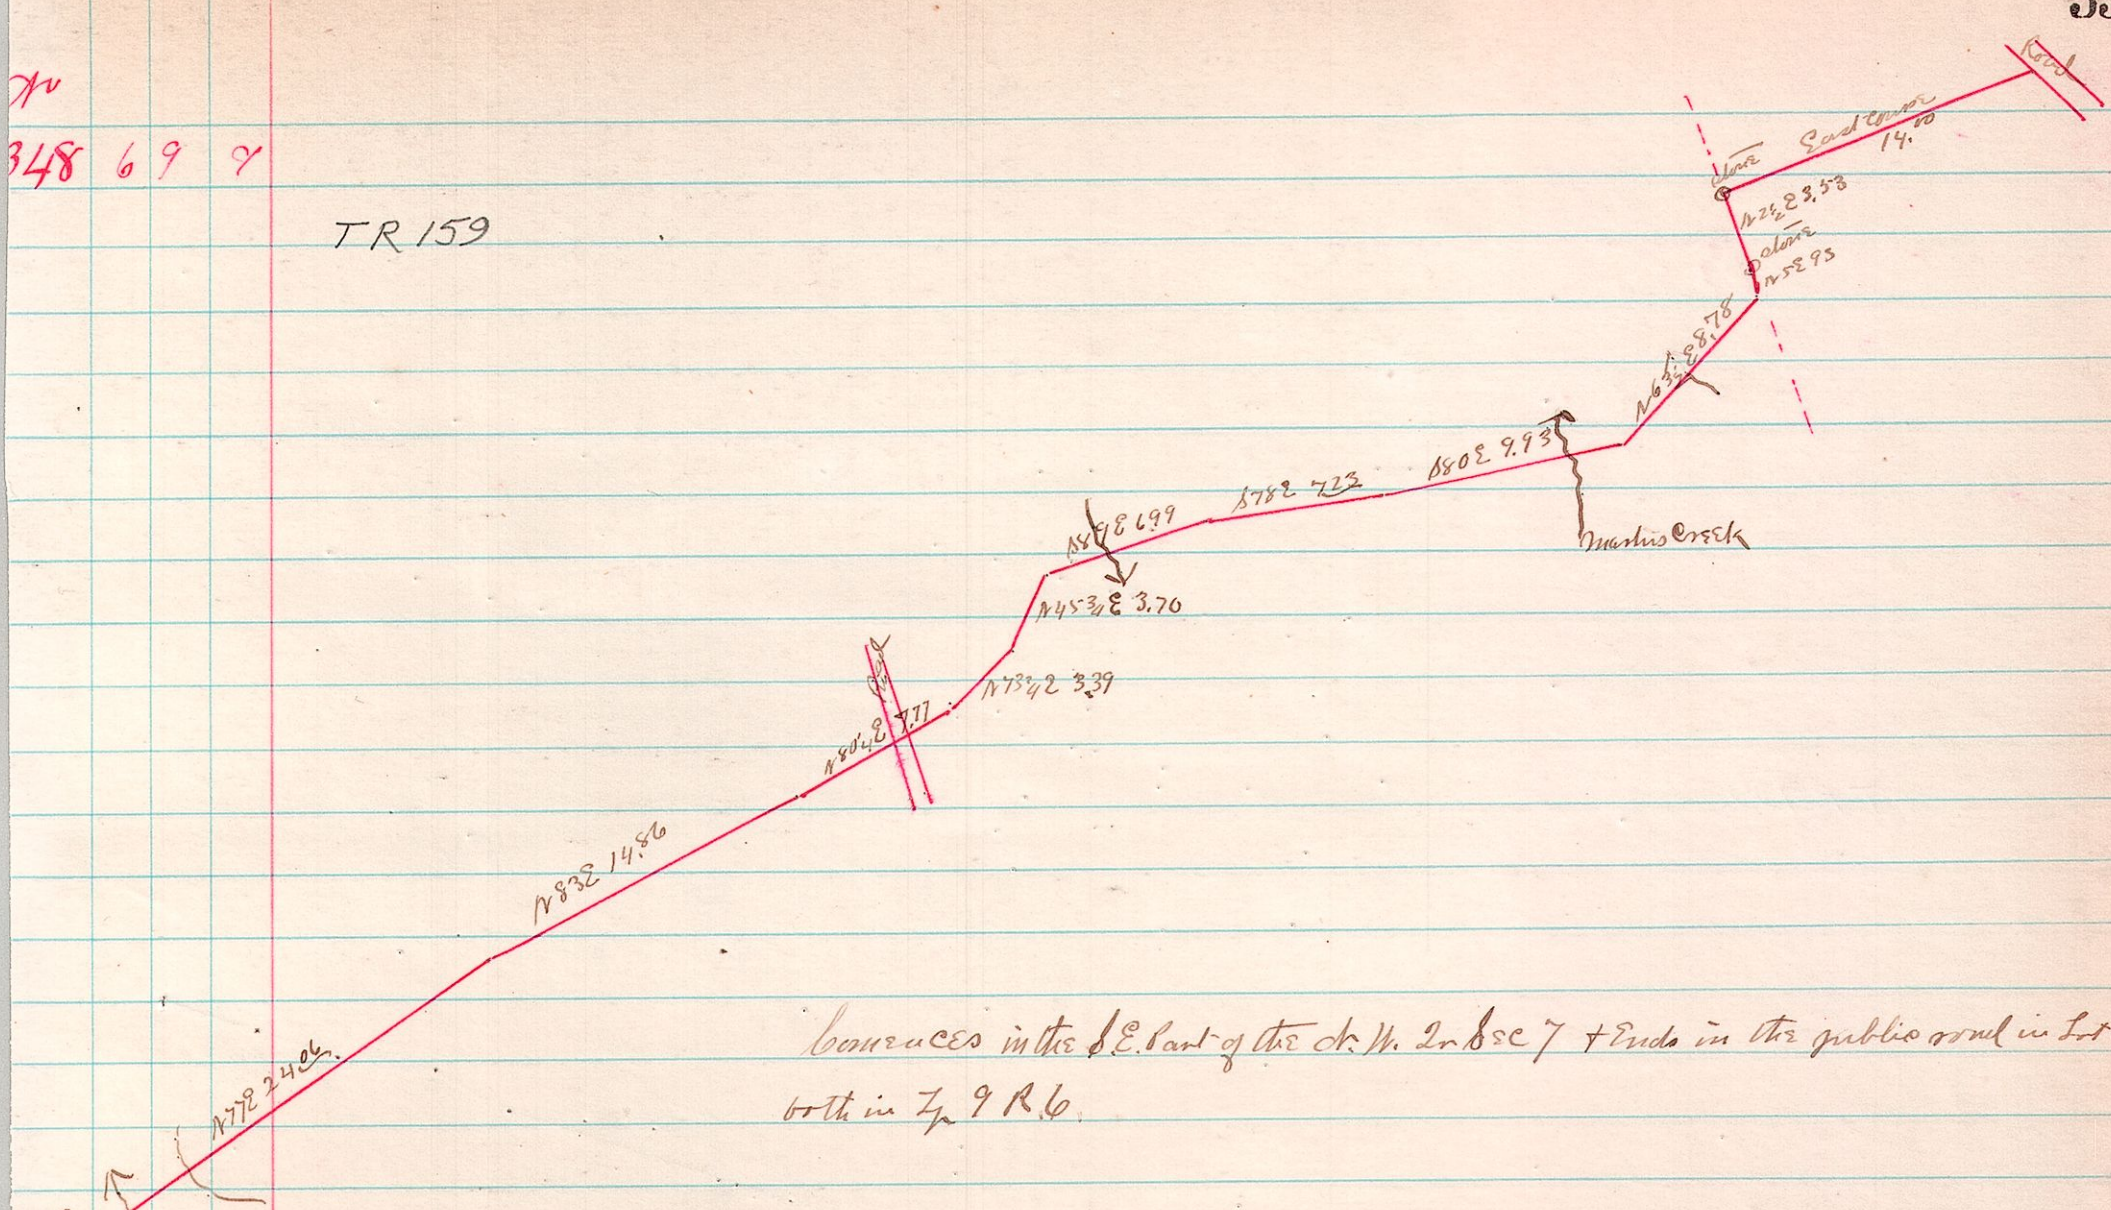 No
348 6 9 7
TR 159
Road
East Course
14.00
stone
N 2½ E 3.53
stone
N 5 E 95
N 63½ E 8.78
S 80 E 9.93
S 78 E 7.23
S 89 E 6.99
N 45¾ E 3.70
N 73¾ E 3.39
Road
N 80¼ E 7.77
N 83 E 14.86
N 77 E 24.06
Creek
Comences in the S.E. Part of the N.W. Qr Sec 7 + Ends in the public road in Lot
both in Tp 9 R.6.